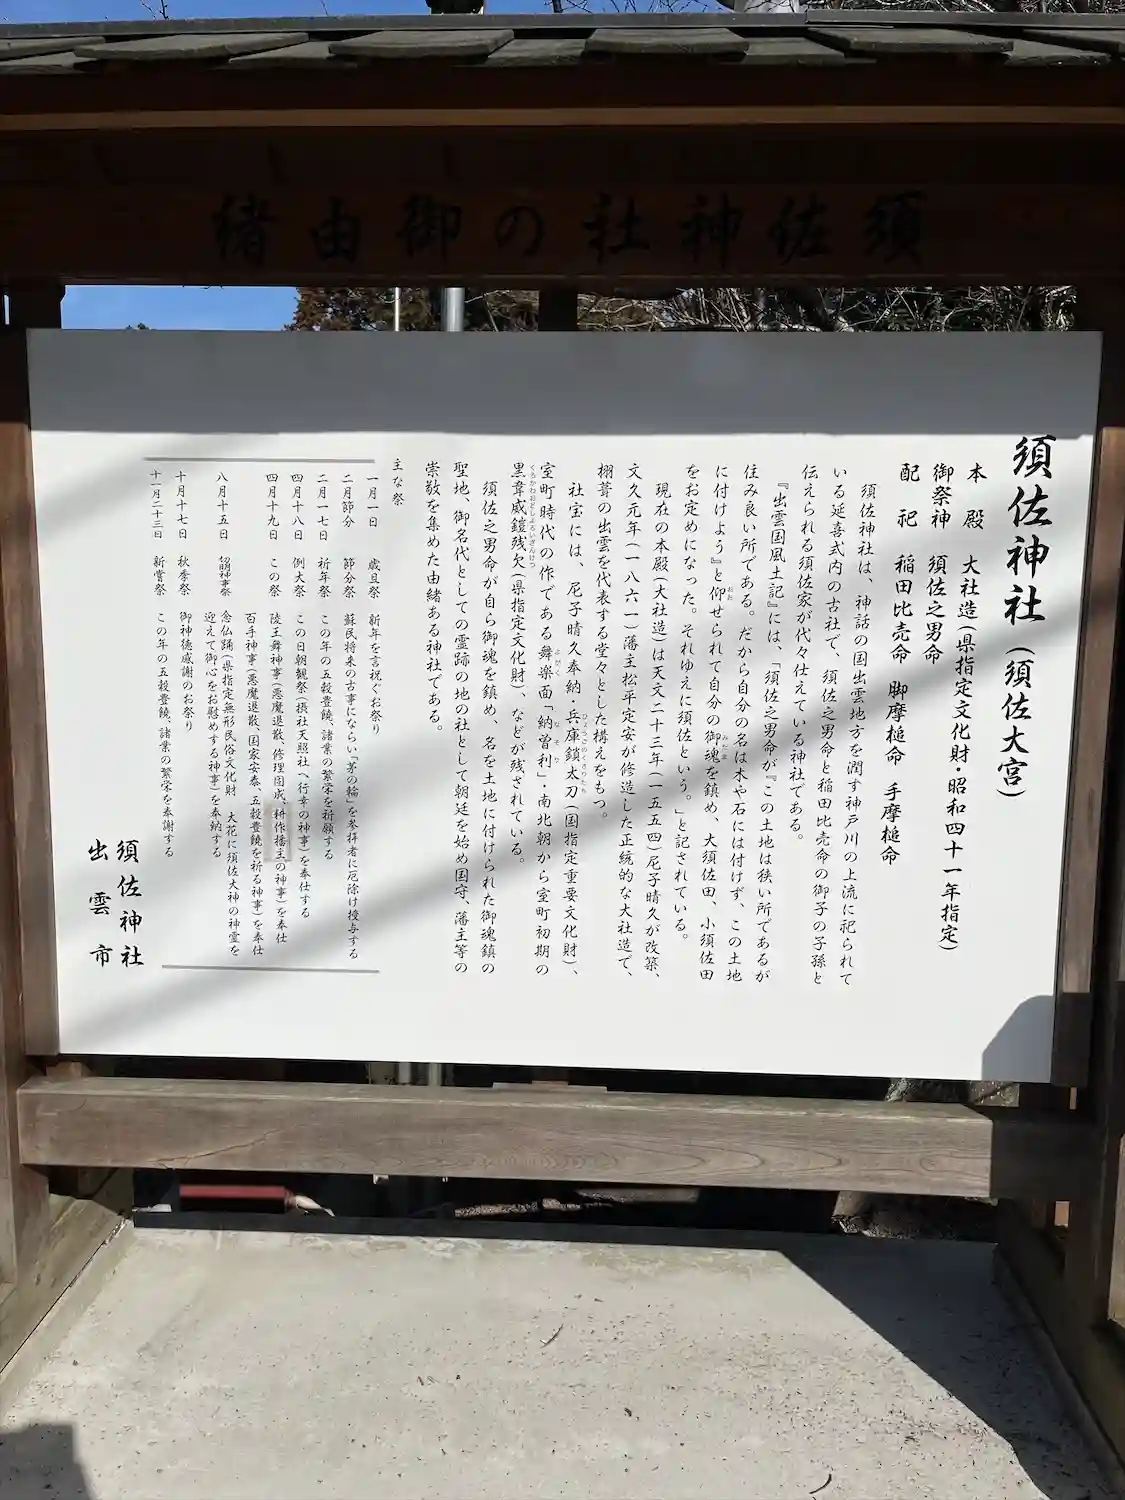 須佐神社の御由緒
須佐神社(須佐大宮)
本殿 大社造(県指定文化財・昭和四十一年指定)
御祭神 須佐之男命
配祀 稲田比売命 脚摩槌命 手摩槌命
須佐神社は、神話の国出雲地方を潤す神戸川の上流に祀られて
いる延喜式内の古社で、須佐之男命と稲田比売命の御子の子孫と
伝えられる須佐家が代々仕えている神社である。
『出雲国風土記』には、「須佐之男命が『この土地は狭い所であるが
住み良い所である。だから自分の名は木や石には付けず、この土地
に付けよう』と仰せられて自分の御魂を鎮め、大須佐田、小須佐田
をお定めになった。それゆえに須佐という。」と記されている。
現在の本殿(大社造)は天文二十三年(一五五四)尼子晴久が改築、
文久元年(一八六一)藩主松平定安が修造した正統的な大社造で、
栩葺の出雲を代表する堂々とした構えをもつ。
社宝には、尼子晴久奉納・兵庫鎖太刀(国指定重要文化財)、
室町時代の作である舞楽面「納曽利」・南北朝から室町初期の
黒韋威鎧残欠(県指定文化財)、などが残されている。
須佐之男命が自ら御魂を鎮め、名を土地に付けられた御魂鎮の
聖地、御名代としての霊跡の地の社として朝廷を始め国守、藩主等の
崇敬を集めた由緒ある神社である。
主な祭
一月一日 歳旦祭 新年を言祝ぐお祭り
二月節分 節分祭 蘇民将来の古事にならい「茅の輪」を参拝者に厄除け授与する
二月一七日 祈年祭 この年の五穀豊饒、諸業の繁栄を祈願する
四月十八日 例大祭 この日朝観祭(摂社天照社へ行幸の神事)を奉仕する
四月十九日 この祭 陵王舞神事(悪魔退散、修理固成、耕作播主の神事)を奉仕
百手神事(悪魔退散、国家安泰、五穀豊饒を祈る神事)を奉仕
八月十五日 切明神事祭 念仏踊(県指定無形民俗文化財 大花に須佐大神の神霊を
迎えて御心をお慰めする神事)を奉納する
十月十七日 秋季祭 御神徳感謝のお祭り
十一月二十三日 新嘗祭 この年の五穀豊饒、諸業の繁栄を奉謝する
須佐神社
出雲市